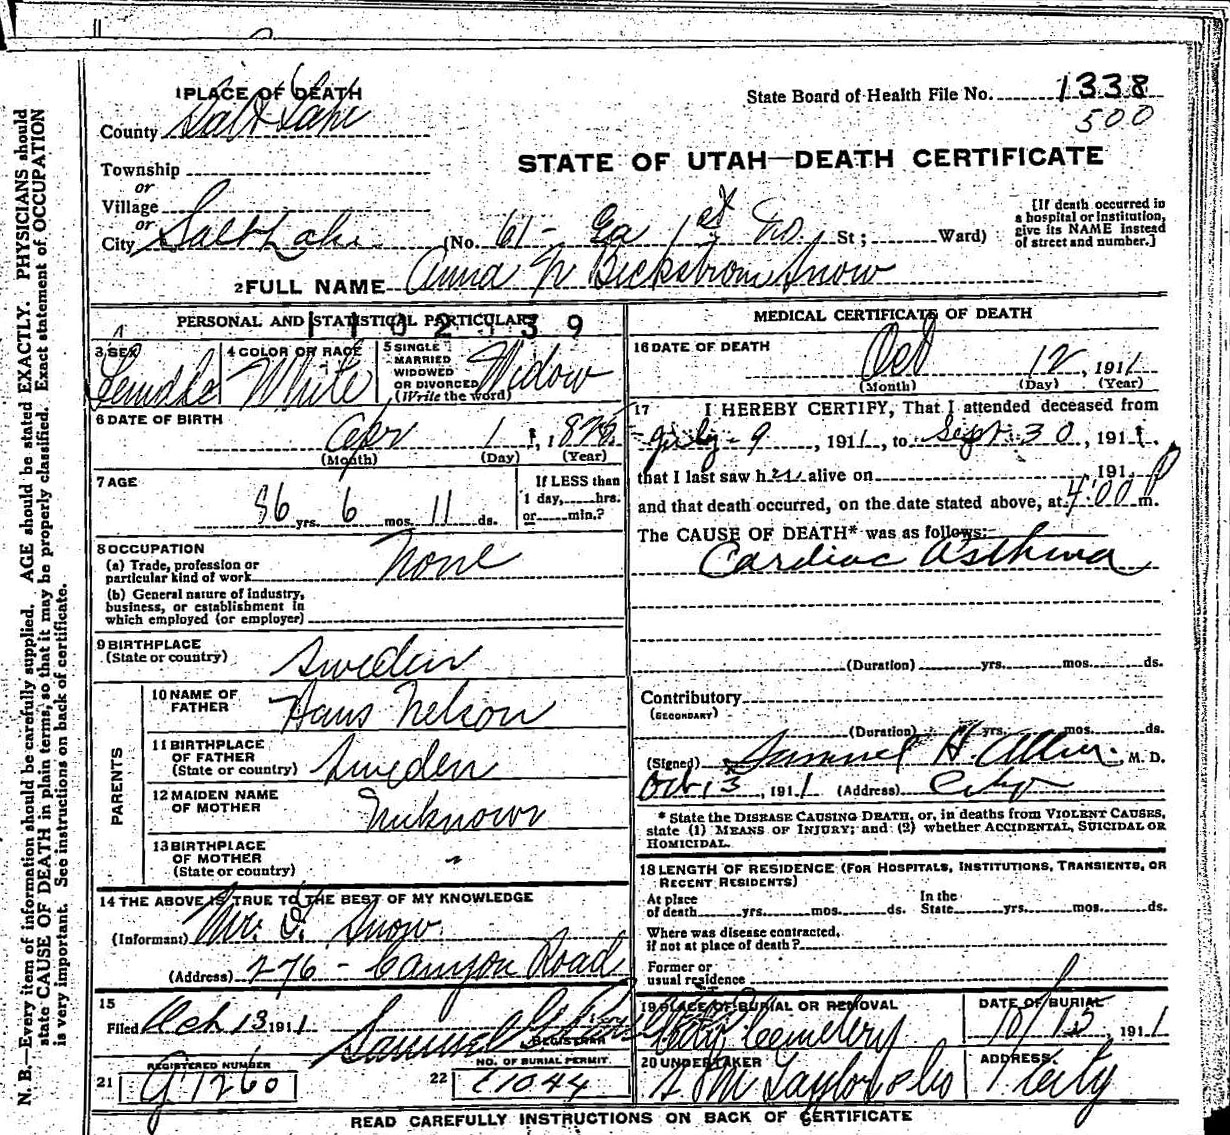 1 PLACE OF DEATH
County Salt Lake
Township
or
Village
or
City Salt Lake (No. 61 - Ea 1st No. St ; Ward)
State Board of Health File No. 1338
500
STATE OF UTAH—DEATH CERTIFICATE
[If death occurred in
a hospital or institution,
give its NAME instead
of street and number.]
2 FULL NAME Anna N Beckstrom Snow
PERSONAL AND STATISTICAL PARTICULARS
110239
3 SEX Female
4 COLOR OR RACE White
5 SINGLE
MARRIED
WIDOWED
OR DIVORCED
(Write the word) Widow
6 DATE OF BIRTH
Apr 1, 1825
(Month) (Day) (Year)
7 AGE
86 yrs. 6 mos. 11 ds.
If LESS than
1 day, hrs.
or min.?
8 OCCUPATION
(a) Trade, profession or
particular kind of work None
(b) General nature of industry,
business, or establishment in
which employed (or employer)
9 BIRTHPLACE
(State or country) Sweden
PARENTS
10 NAME OF
FATHER Hans Nelson
11 BIRTHPLACE
OF FATHER
(State or country) Sweden
12 MAIDEN NAME
OF MOTHER Unknown
13 BIRTHPLACE
OF MOTHER
(State or country) "
14 THE ABOVE IS TRUE TO THE BEST OF MY KNOWLEDGE
(Informant) Mr. Snow
(Address) 276 - Canyon Road
15
Filed Oct 13 1911 Samuel
REGISTRAR
REGISTERED NUMBER
21 G1260
NO. OF BURIAL PERMIT
22 E1044
MEDICAL CERTIFICATE OF DEATH
16 DATE OF DEATH
Oct 12, 1911
(Month) (Day) (Year)
17 I HEREBY CERTIFY, That I attended deceased from
July - 9, 1911, to Sept 30, 1911.
that I last saw her alive on 191
and that death occurred, on the date stated above, at 4:00 P m.
The CAUSE OF DEATH* was as follows:
Cardiac Asthma
(Duration) yrs. mos. ds.
Contributory
(SECONDARY)
(Duration) yrs. mos. ds.
(Signed) Samuel H. Allen. M. D.
Oct 13, 1911 (Address) City
* State the DISEASE CAUSING DEATH, or, in deaths from VIOLENT CAUSES,
state (1) MEANS OF INJURY; and (2) whether ACCIDENTAL, SUICIDAL OR
HOMICIDAL.
18 LENGTH OF RESIDENCE (FOR HOSPITALS, INSTITUTIONS, TRANSIENTS, OR
RECENT RESIDENTS)
At place
of death yrs. mos. ds.
In the
State yrs. mos. ds.
Where was disease contracted,
if not at place of death?
Former or
usual residence
19 PLACE OF BURIAL OR REMOVAL
City Cemetery
DATE OF BURIAL
10/15, 1911
20 UNDERTAKER
S M Taylor & Co
ADDRESS.
City
READ CAREFULLY INSTRUCTIONS ON BACK OF CERTIFICATE
N. B.—Every item of information should be carefully supplied. AGE should be stated EXACTLY. PHYSICIANS should
state CAUSE OF DEATH in plain terms, so that it may be properly classified. Exact statement of OCCUPATION
is very important. See instructions on back of certificate.